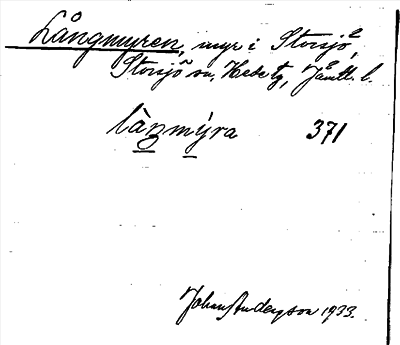 Långmyren, myr i Storsjö,
Storsjö sn, Hede tg, Jämtl. l.
làŋmýra 371
Johan Anderzson 1933.